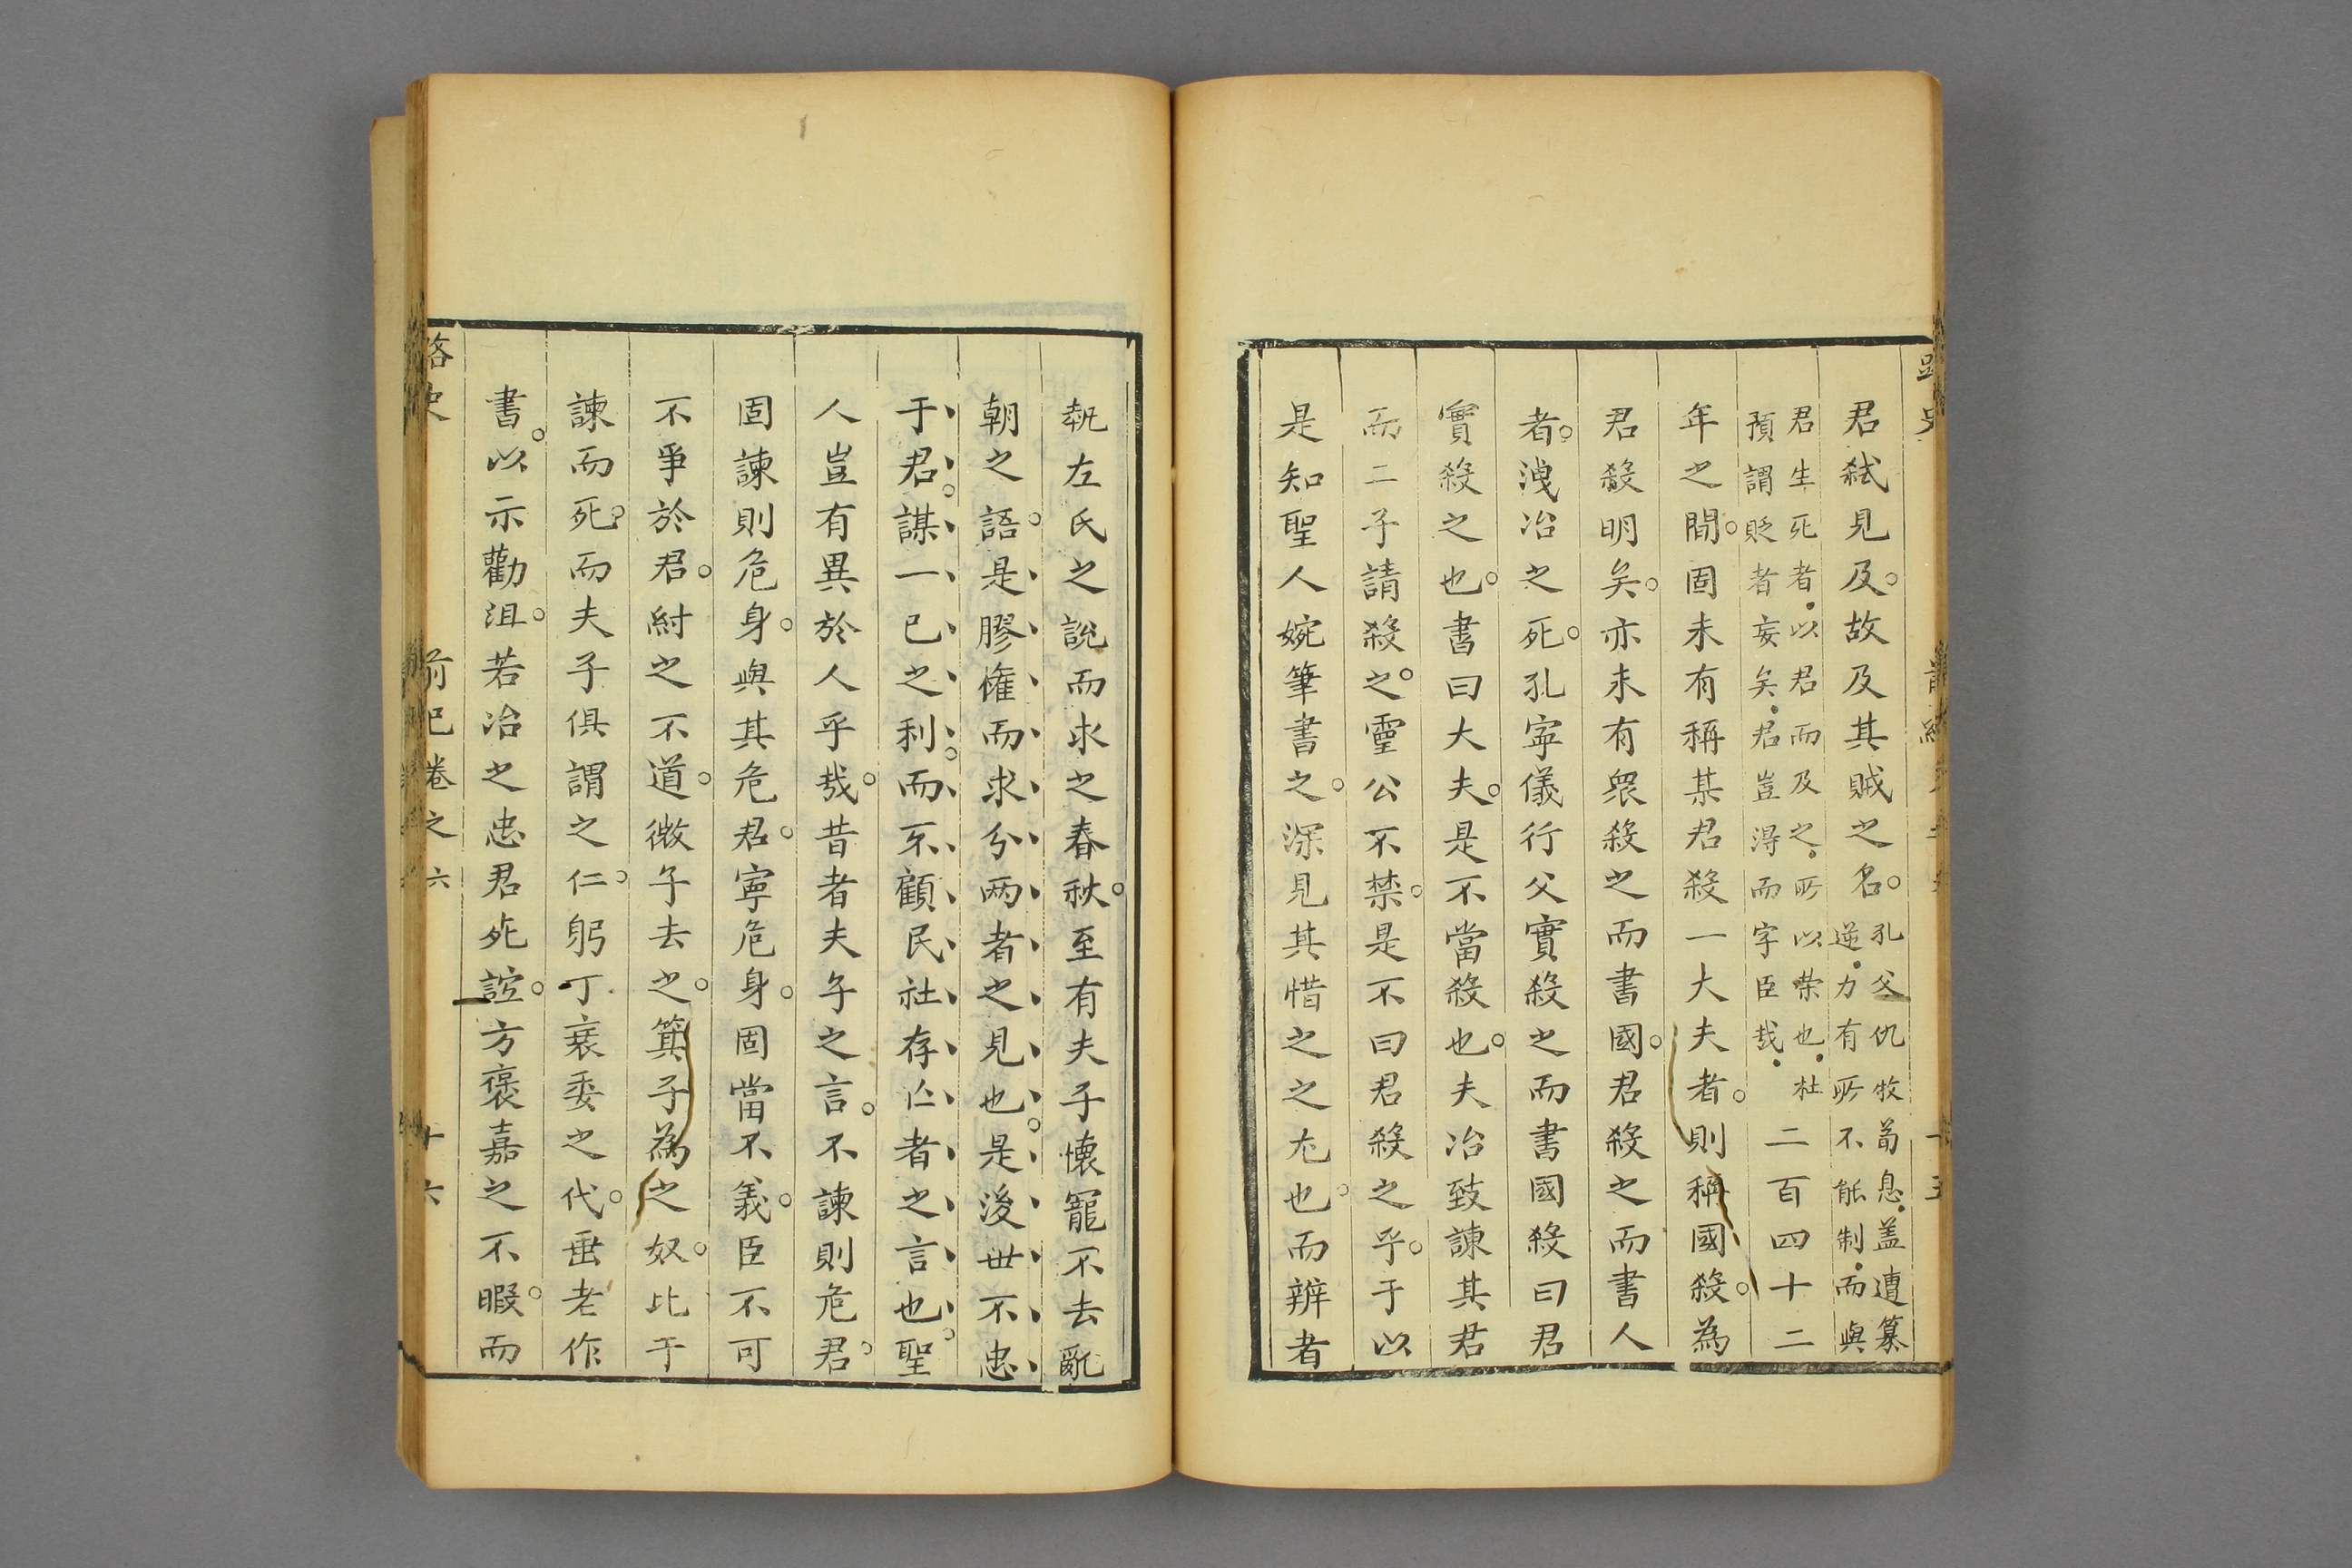 君弑見及。故及其賊之名。孔父仇牧荀息。盖遭篡逆。力有所不能制。而與
君生死者。以君而及之。所以荣也。杜預謂貶者妄矣。君豈得而字臣哉。二百四十二
年之間。固未有稱某君殺一大夫者。則稱國殺。為
君殺明矣。亦未有衆殺之而書國。君殺之而書人
者。洩冶之死。孔寕儀行父實殺之而書國殺曰君
實殺之也。書曰大夫。是不當殺也。夫冶致諫其君
而二子請殺之。靈公不禁。是不曰君殺之乎。于以
是知聖人婉筆書之。深見其惜之之尤也。而辨者
執左氏之說而求之春秋。至有夫子懐寵不去亂
朝之語。是膠㩁而求分兩者之見也。是後世不忠
于君。謀一已之利。而不顧民社存亡者之言也。聖
人豈有異於人乎哉。昔者夫子之言。不諫則危君。
固諫則危身。與其危君。寧危身。固當不義。臣不可
不爭於君。紂之不道。微子去之。箕子為之奴。比干
諫而死。而夫子俱謂之仁。躬丁衰委之代。垂老作
書。以示勸沮。若冶之忠君死諠。方褒嘉之不暇。而
路史
前紀卷之六
十六